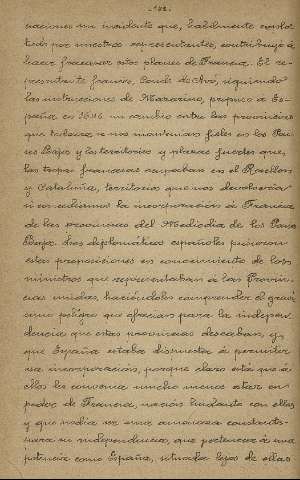 naciones un incidente que, habilmente explo-
tado por nuestros representantes, contribuyó á
hacer fracasar estos planes de Francia. El re-
presentante francés, Conde de Avó, siguiendo
las instrucciones de Mazarino, propuso á Es-
paña en 1646 un cambio entre las provincias
que todavía se nos mantenían fieles en los Paí-
ses Bajos y los territorios y plazas fuertes que,
las tropas francesas ocupaban en el Rosellón
y Cataluña, territorios que nos devolverían
si consentíamos la incorporación á Francia
de las provincias del Mediodía de los Países
Bajos. Los diplomáticos españoles pusieron
estas proposiciones en conocimiento de los
ministros que representaban á las Provin-
cias unidas, haciéndoles comprender el graví-
simo peligro que ofrecían para la indepen-
dencia que estas provincias deseaban, y,
que España estaba dispuesta á permitir
esa incorporación, porque claro está que á
ellos les convenía mucho menos estar en
poder de Francia, nación lindante con ellas
y que podía ser una amenaza constante
para su independencia, que pertenecer á una
potencia como España, situada lejos de ellas